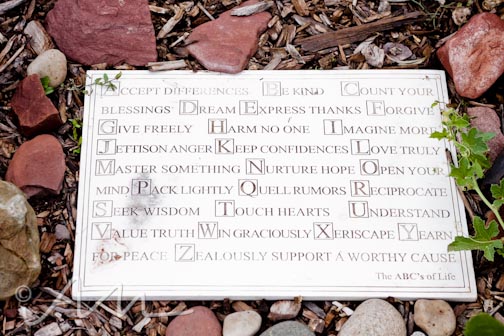 ACCEPT DIFFERENCES BE KIND COUNT YOUR
BLESSINGS DREAM EXPRESS THANKS FORGIVE
GIVE FREELY HARM NO ONE IMAGINE MORE
JETTISON ANGER KEEP CONFIDENCES LOVE TRULY
MASTER SOMETHING NURTURE HOPE OPEN YOUR
MIND PACK LIGHTLY QUELL RUMORS RECIPROCATE
SEEK WISDOM TOUCH HEARTS UNDERSTAND
VALUE TRUTH WIN GRACIOUSLY XERISCAPE YEARN
FOR PEACE ZEALOUSLY SUPPORT A WORTHY CAUSE
The ABC's of Life